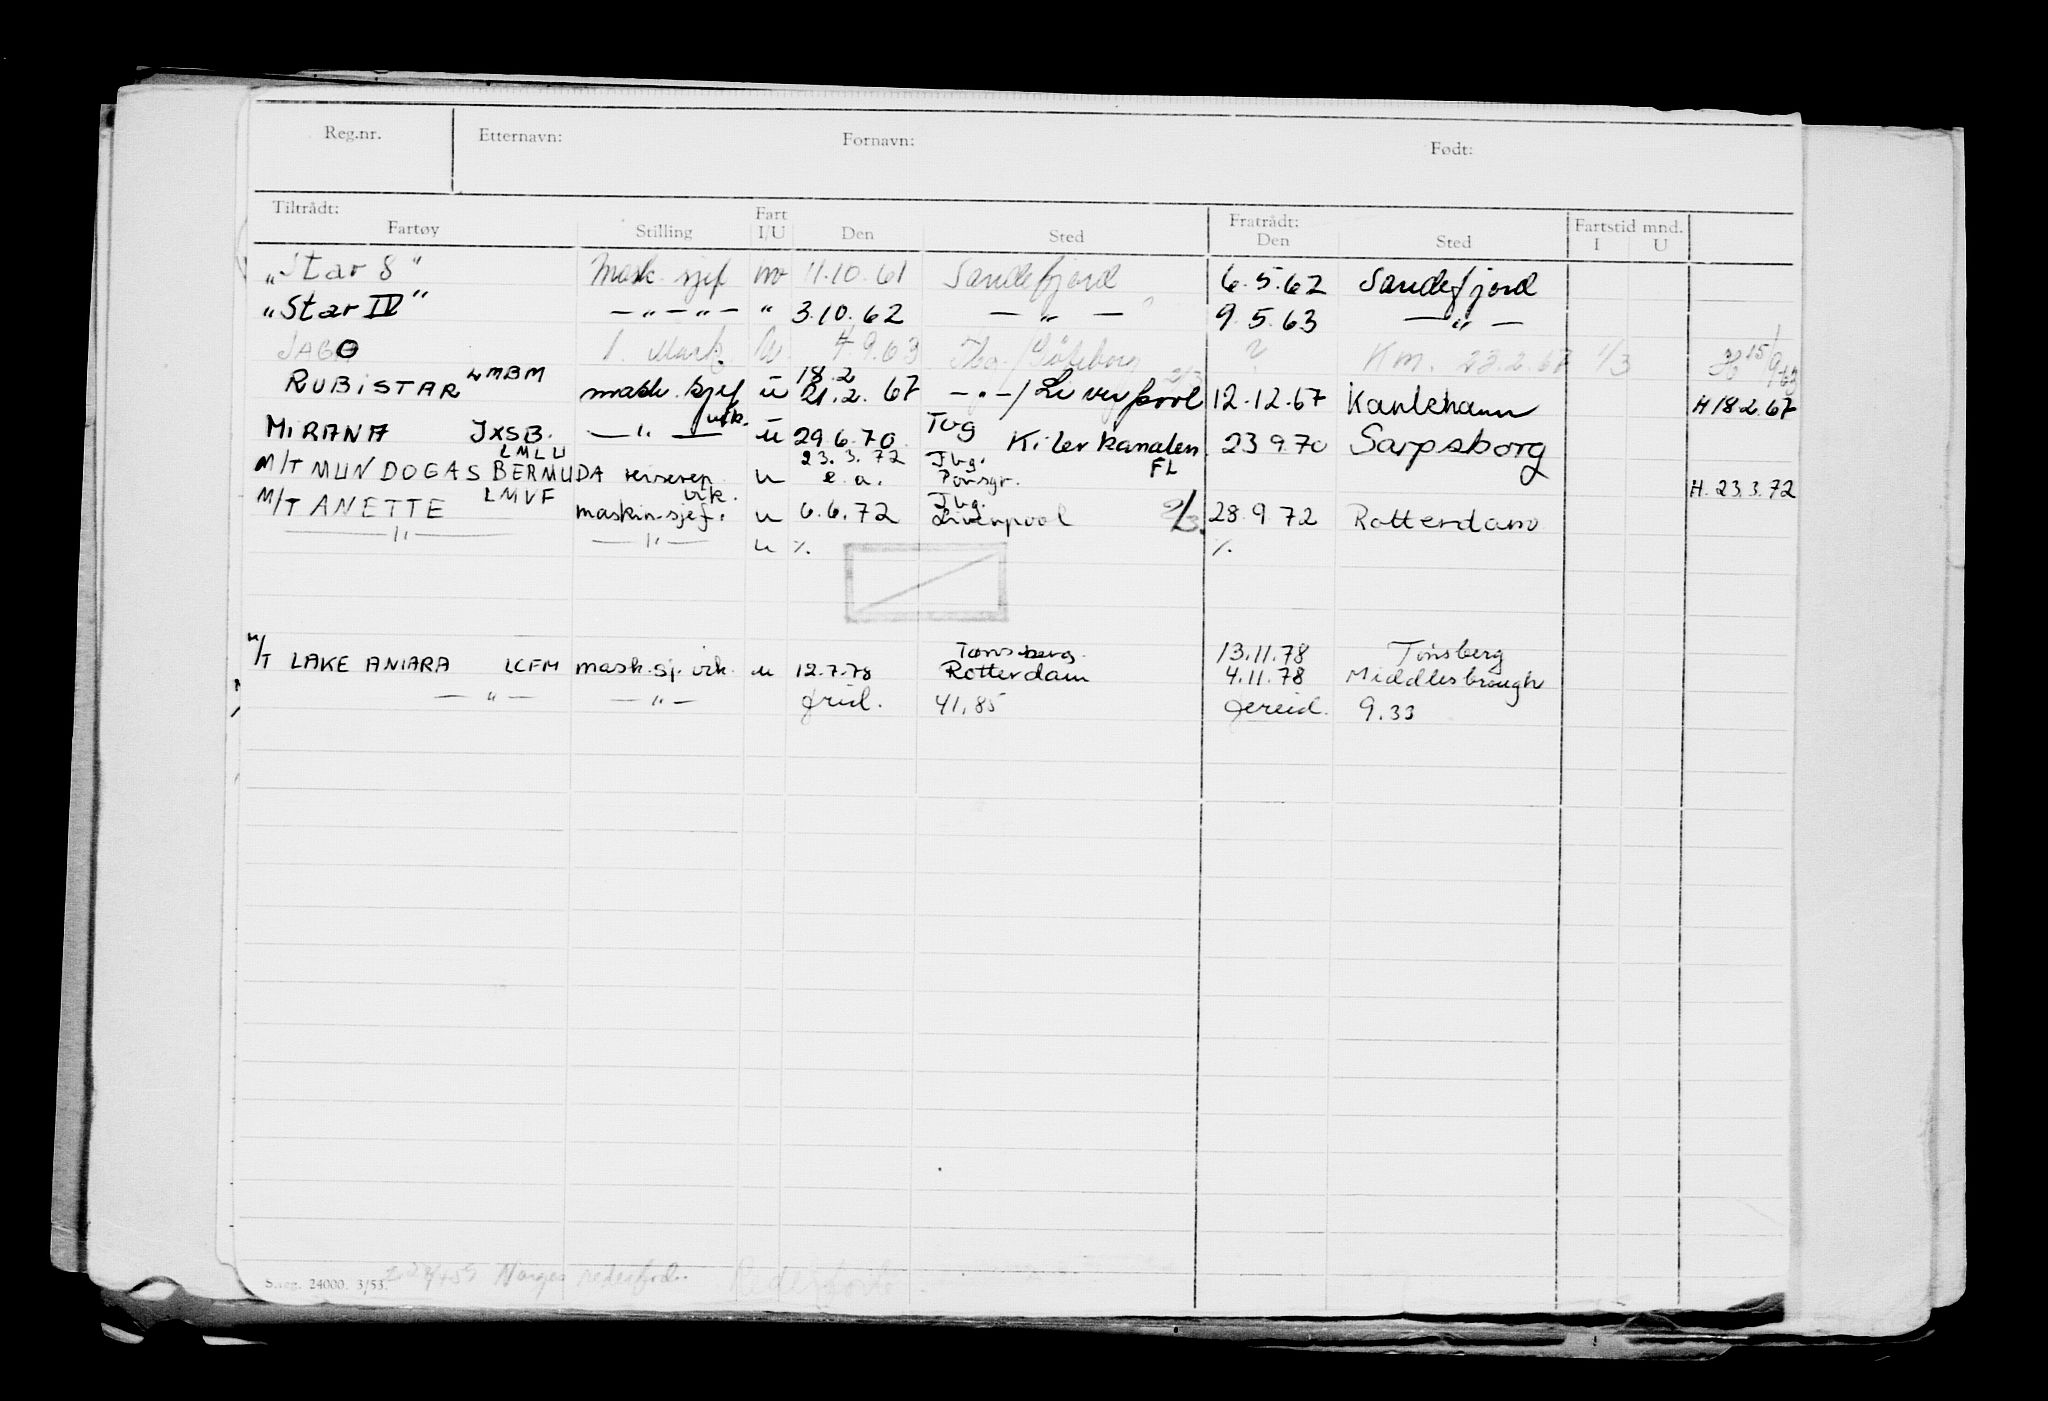 Reg.nr. Etternavn: Fornavn: Født:
Tiltrådt: Fratrådt:
Fartøy Stilling Fart I/U Den Sted Den Sted Fartstid mnd. I U
"Star 8" Mask. sjef 11.10.61 Sandefjord 6.5.62 Sandefjord
"Star IV" — " — " — " 3.10.62 — " — 9.5.63 — " —
JAGO 1. Mask 4.9.63 Tbg./Göteborg ? Km. 23.2.67 1/3 15/9 63
RUBISTAR LMBM mask. sjef u 18.2 21.2.67 — " — / Liverpool 2/3 12.12.67 H 18.2.67
MIRANA JXSB. — " — vik. u 29.6.70 Tbg Kilerkanalen 23.9.70 Sarpsborg
M/T MUNDOGAS BERMUDA LMLU reiserep. u 23.3.72 e.a. Tbg. Porsgr. FL H. 23.3.72
M/T ANETTE LMVF maskin.sjef. vik. u 6.6.72 Tbg. Liverpool 2/3. 28.9.72 Rotterdam
— " — — " — u %. %.
M/T LAKE ANIARA LCFM mask.sj. vik. u 12.7.78 Tønsberg. Rotterdam 13.11.78 Tønsberg
4.11.78 Middlesbrough
— " — — " — 41,85 9.33
S.reg. 24000. 3/53. Norges rederforb.